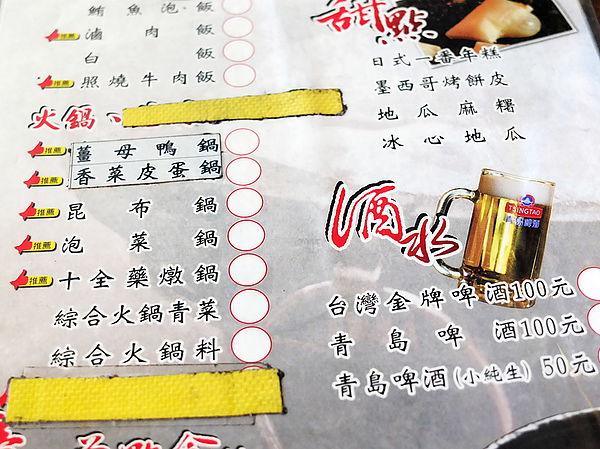 鮪魚泡飯
推薦 滷肉飯
白飯
推薦 照燒牛肉飯
火鍋、
推薦 薑母鴨鍋
推薦 香菜皮蛋鍋
推薦 昆布鍋
推薦 泡菜鍋
推薦 十全藥燉鍋
綜合火鍋青菜
綜合火鍋料
甜點
日式一番年糕
墨西哥烤餅皮
地瓜麻糬
冰心地瓜
酒水
TSINGTAO
台灣金牌啤酒100元
青島啤酒100元
青島啤酒(小純生) 50元